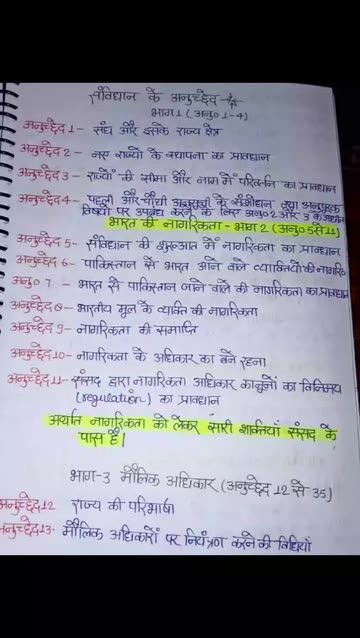 संविधान के अनुच्छेद
भाग 1 (अनु० 1-4)
अनुच्छेद 1 - संघ और इसके राज्य क्षेत्र
अनुच्छेद 2 - नए राज्यों के स्थापना का प्रावधान
अनुच्छेद 3 - राज्यों की सीमा और नाम में परिवर्तन का प्रावधान
अनुच्छेद 4 - पहली और चौथी अनुसूची के संशोधन तथा अनुपूरक
विषयों पर उपबंध करने के लिए अनु० 2 और 3 के अधीन
भारत की नागरिकता - भाग 2 (अनु० 5 से 11)
अनुच्छेद 5 - संविधान की शुरूआत में नागरिकता का प्रावधान
अनुच्छेद 6 - पाकिस्तान से भारत आने वाले व्याक्तियो की नागरि
अनु० 7 - भारत से पाकिस्तान जाने वाले की नागरिकता का प्रावधान
अनुच्छेद 8 - भारतीय मूल के व्यक्ति की नागरिकता
अनुच्छेद 9 - नागरिकता की समाप्ति
अनुच्छेद 10 - नागरिकता के अधिकार का बने रहना
अनुच्छेद 11 - संसद द्वारा नागरिकता अधिकार कानूनों का विनिमय
(regulation) का प्रावधान
अर्थात नागरिकता को लेकर सारी शक्तियां संसद के
पास है।
भाग-3 मौलिक अधिकार (अनुच्छेद 12 से 35)
अनुच्छेद 12 राज्य की परिभाषा
अनुच्छेद 13- मौलिक अधिकारों पर नियंत्रण करने की विधियाँ